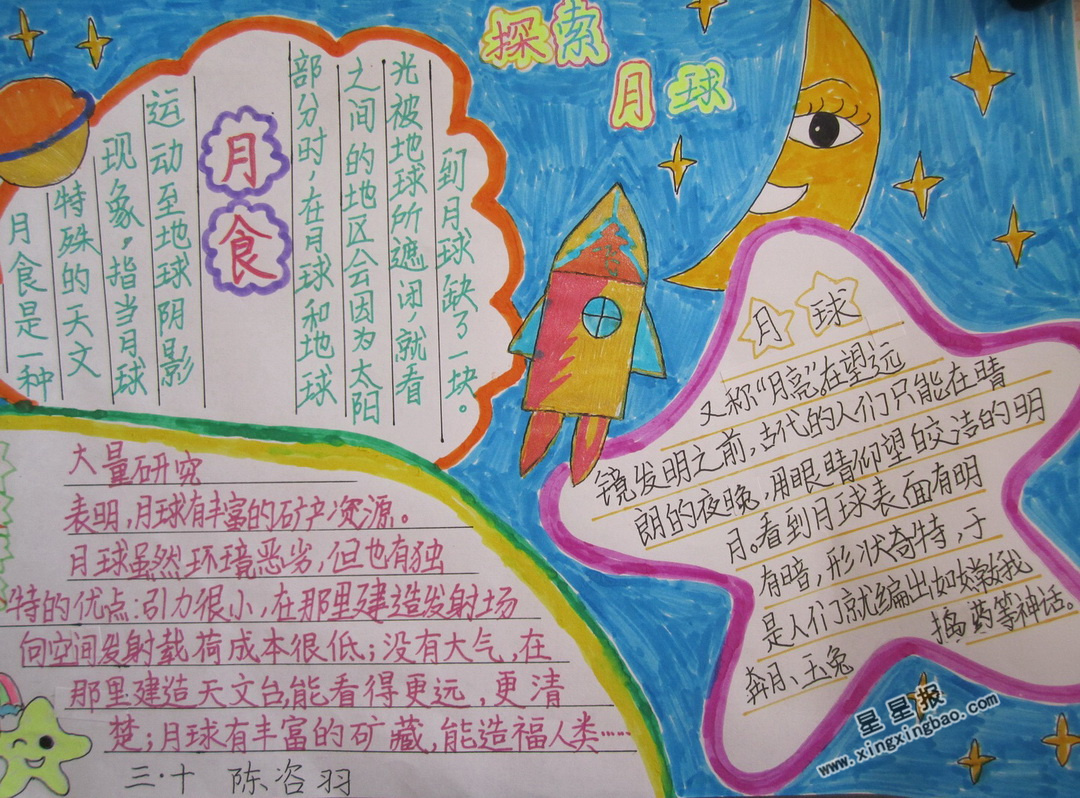 探索
月球
月食
月食是一种
特殊的天文
现象，指当月球
运动至地球阴影
部分时，在月球和地球
之间的地区会因为太阳
光被地球所遮闭，就看
到月球缺了一块。
月球
又称“月亮”。在望远
镜发明之前，古代的人们只能在晴
朗的夜晚，用眼睛仰望皎洁的明
月。看到月球表面有明
有暗，形状奇特，于
是人们就编出如嫦娥
奔月、玉兔捣药等神话。
大量研究
表明，月球有丰富的矿产资源。
月球虽然环境恶劣，但也有独
特的优点：引力很小，在那里建造发射场
向空间发射载荷成本很低；没有大气，在
那里建造天文台，能看得更远，更清
楚；月球有丰富的矿藏，能造福人类……
三·十 陈咨羽
星星报
www.xingxingbao.com